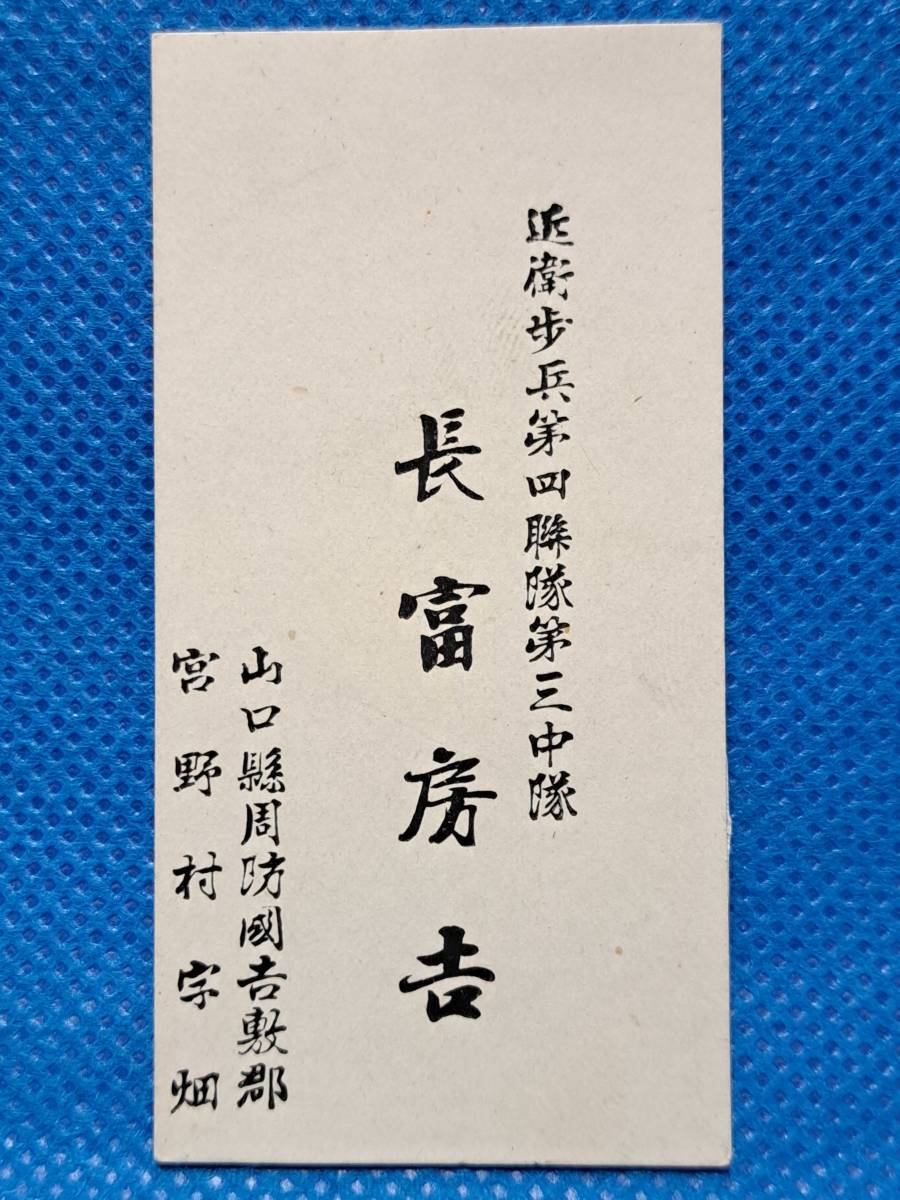 近衛歩兵第四聯隊第三中隊
長富房𠮷
山口縣周防國𠮷敷郡
宮野村字畑